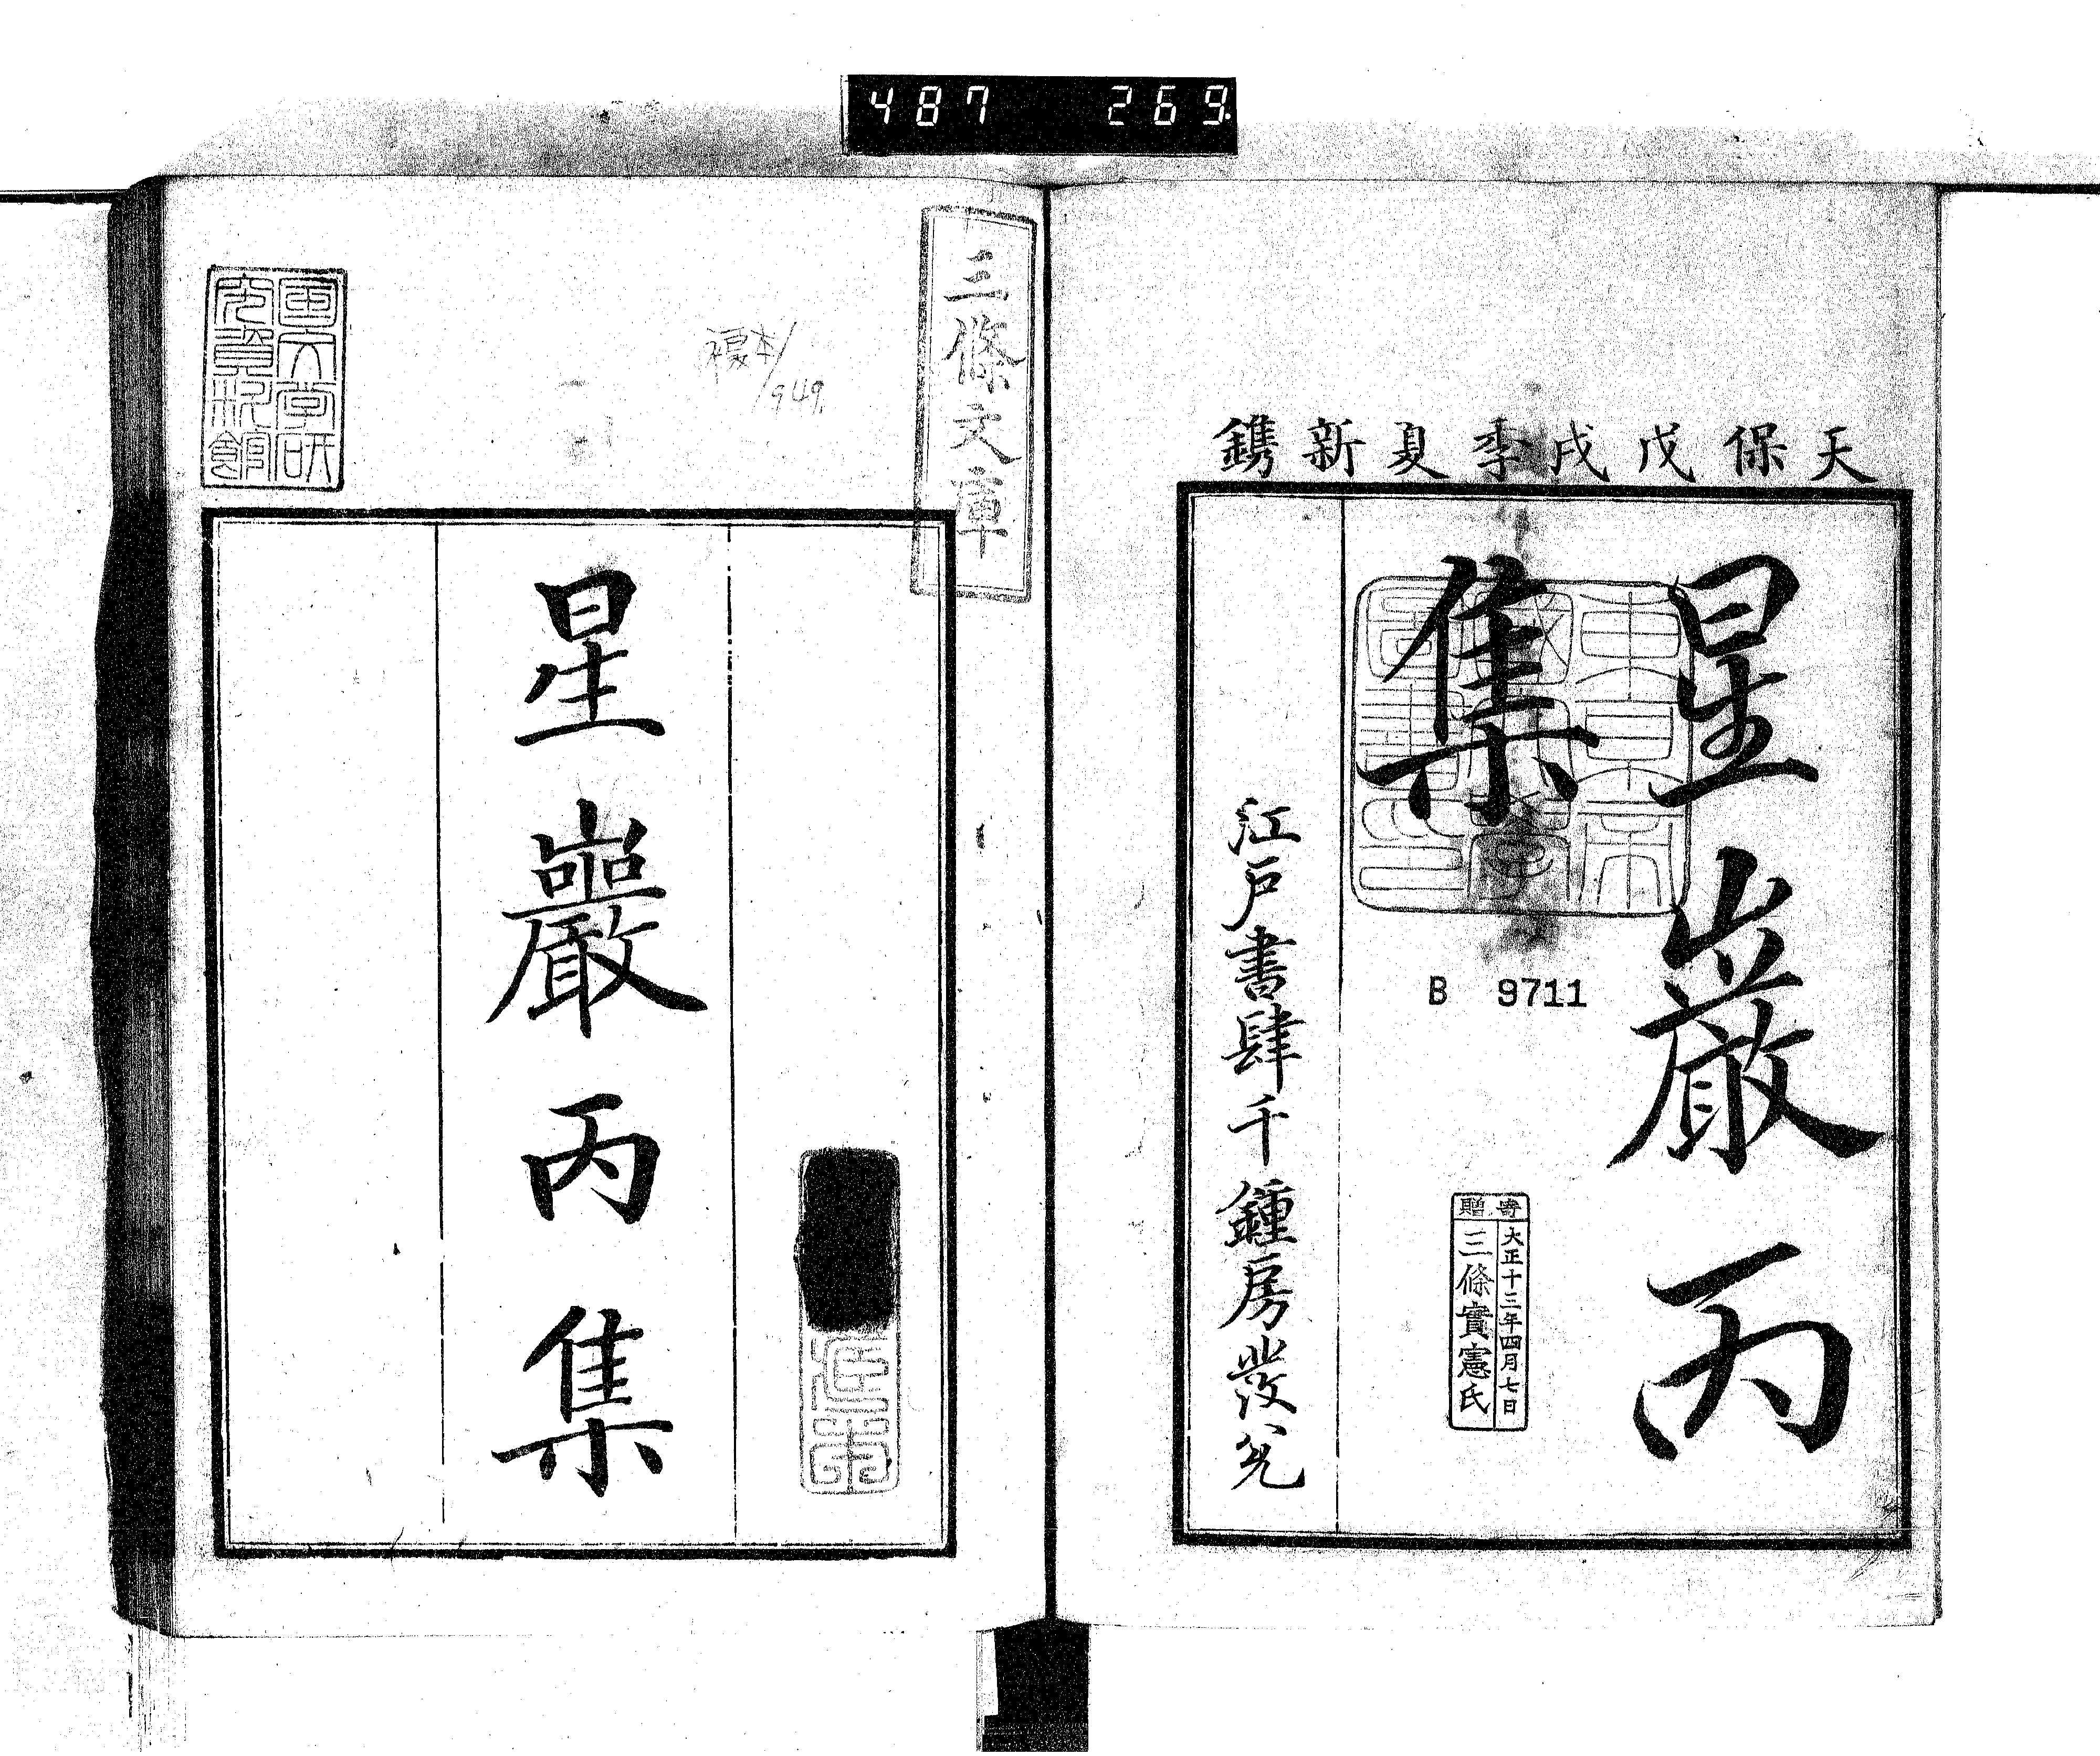 487 269
天保戊戌季夏新鐫
星巖丙
集
江戸書肆千鍾房發兌
B 9711
寄贈
大正十三年四月七日
三條實憲氏
三條文庫
複本/949.
国文学研
究資料館
星巖丙集